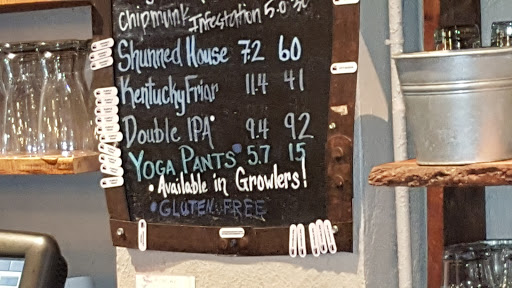 Chipmunk Infestation 5.0 30
Shunned House 7.2 60
Kentucky Friar 11.4 41
Double IPA• 9.4 92
YOGA PANTS• 5.7 15
• Available in Growlers!
• GLUTEN FREE